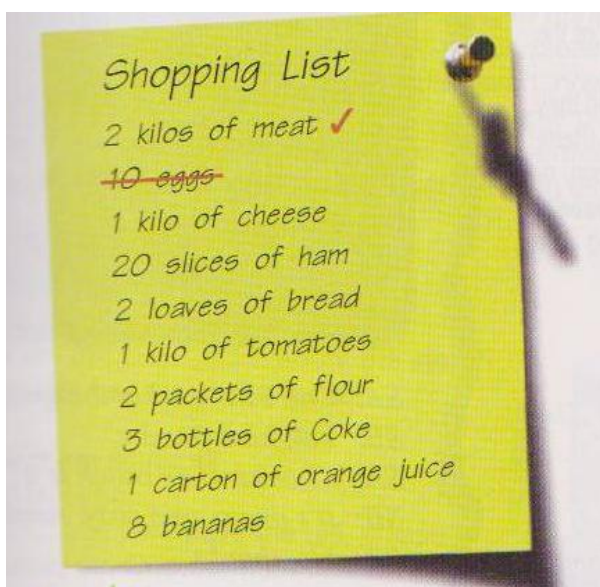 Shopping List
2 kilos of meat ✓
10 eggs
1 kilo of cheese
20 slices of ham
2 loaves of bread
1 kilo of tomatoes
2 packets of flour
3 bottles of Coke
1 carton of orange juice
8 bananas